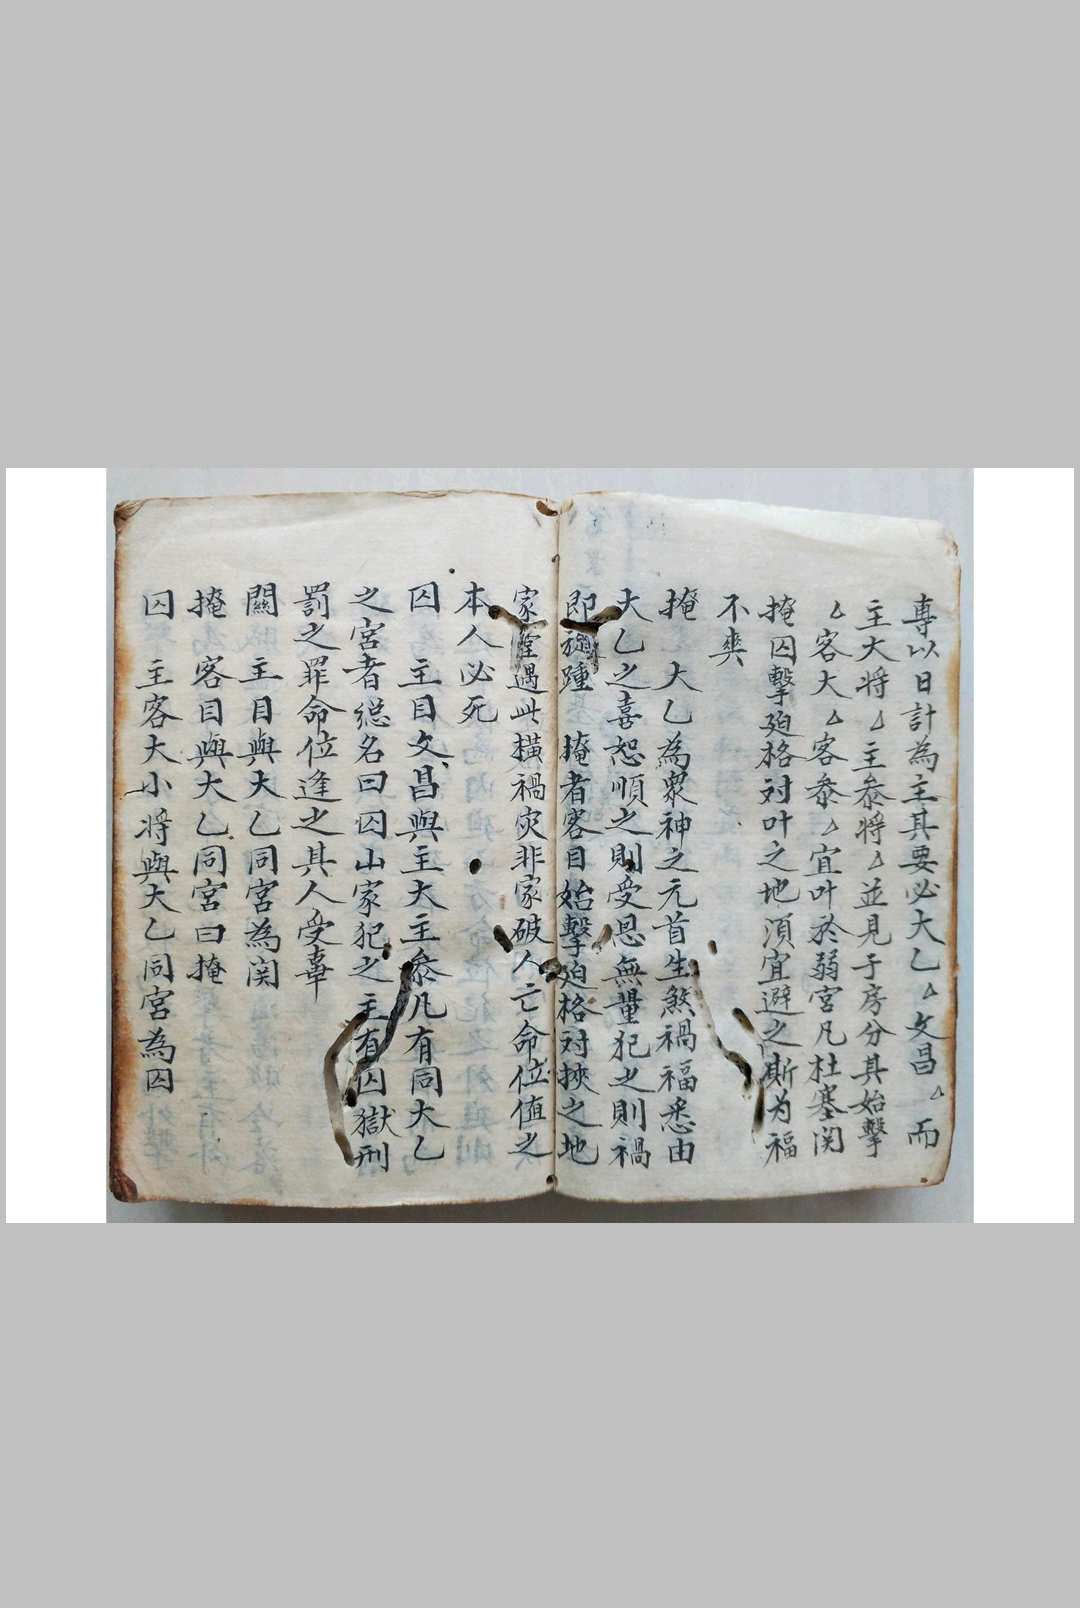 專以日計為主其要必大乙△文昌△而
主大将△主叅将△並見于房分其始擊
△客大△客叅△宜叶於弱宮凡杜塞関
掩囚擊廹格対叶之地須宜避之斯为福
不爽
掩 大乙為衆神之元首生煞禍福悉由
大乙之喜恕順之則受恩無量犯之則禍
即旋踵 掩者客目始擊廹格対挾之地
家遇此横禍灾非家破人亡命位值之
本人必死
囚 主目文昌與主大主叅凡有同大乙
之宮者總名曰囚山家犯之主有囚獄刑
罰之罪命位逢之其人受辜
關 主目與大乙同宮為関
掩 客目與大乙同宮曰掩
囚 主客大小将與大乙同宮為囚